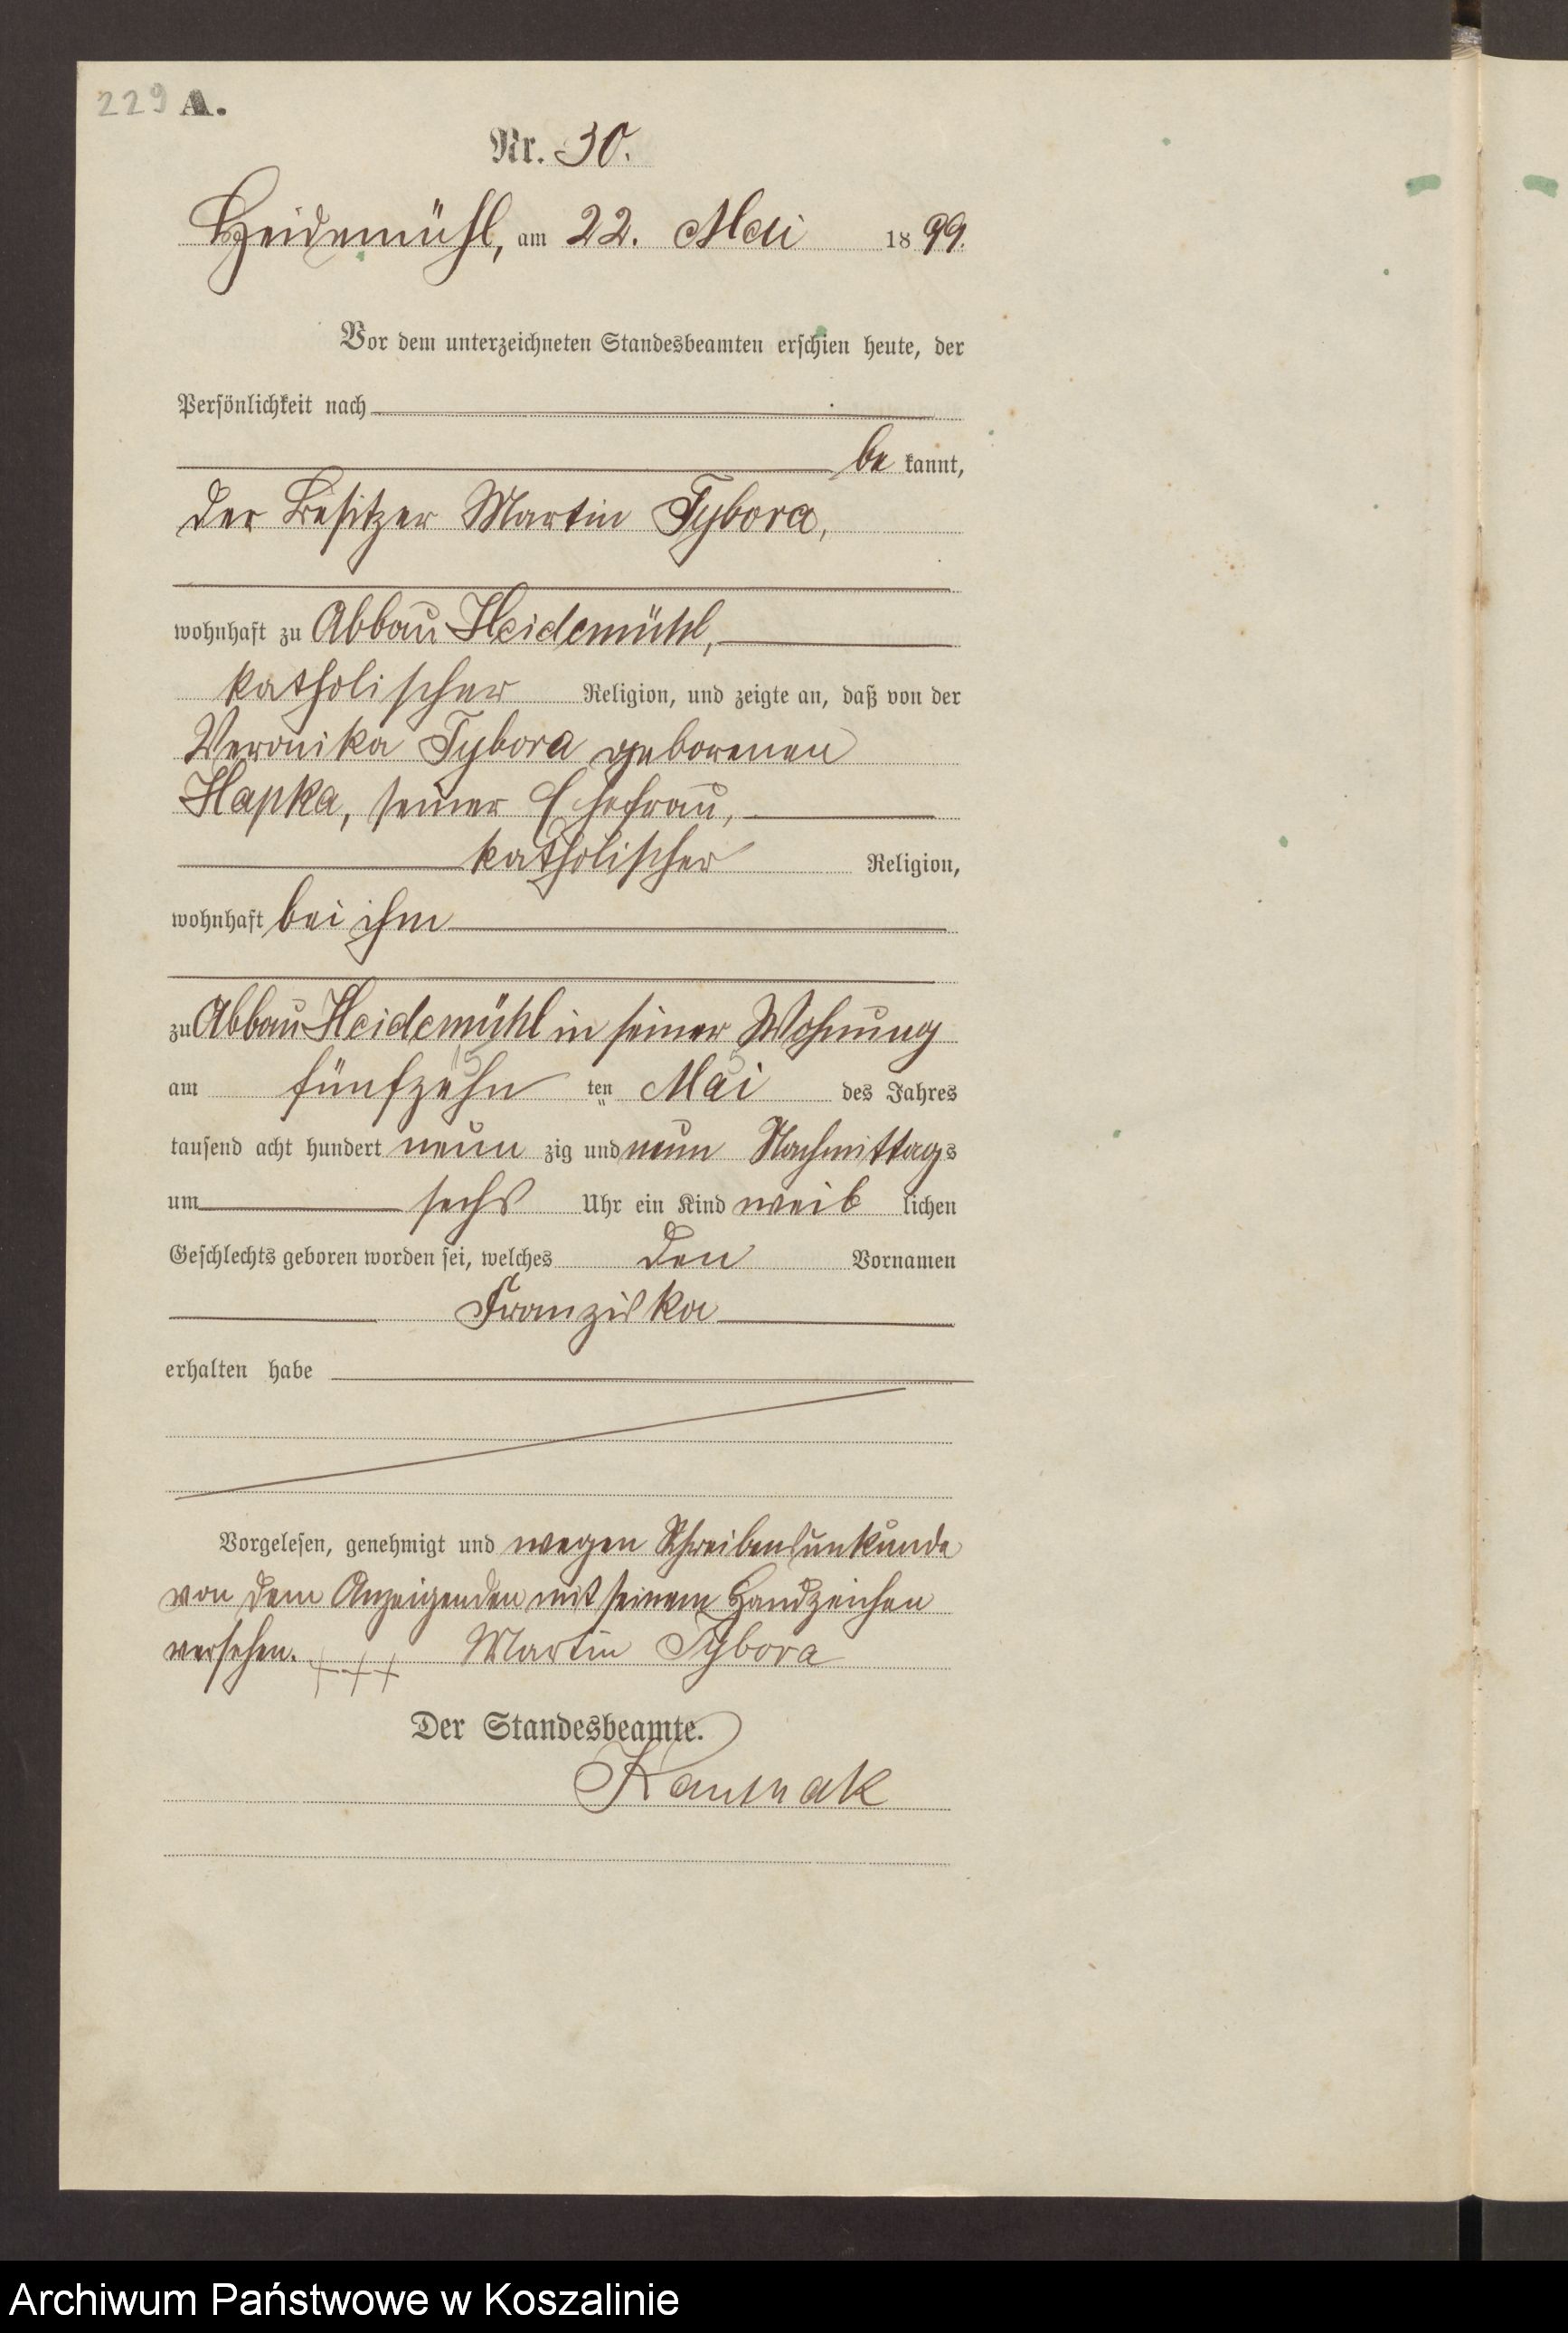 229 A.
Nr. 30.
Heidemühl, am 22. Mai 1899.
Vor dem unterzeichneten Standesbeamten erschien heute, der
Persönlichkeit nach
be kannt,
der Besitzer Martin Tybora,
wohnhaft zu Abbau Heidemühl,
katholischer Religion, und zeigte an, daß von der
Veronika Tybora geborenen
Hapka, seiner Ehefrau,
katholischer Religion,
wohnhaft bei ihm
zu Abbau Heidemühl in seiner Wohnung
am fünfzehn ten Mai des Jahres
tausend acht hundert neun zig und neun Nachmittags
um sechs Uhr ein Kind weib lichen
Geschlechts geboren worden sei, welches den Vornamen
Franziska
erhalten habe
Vorgelesen, genehmigt und wegen Schreibensunkunde
von dem Anzeigenden mit seinem Handzeichen
versehen. +++ Martin Tybora
Der Standesbeamte.
Archiwum Państwowe w Koszalinie